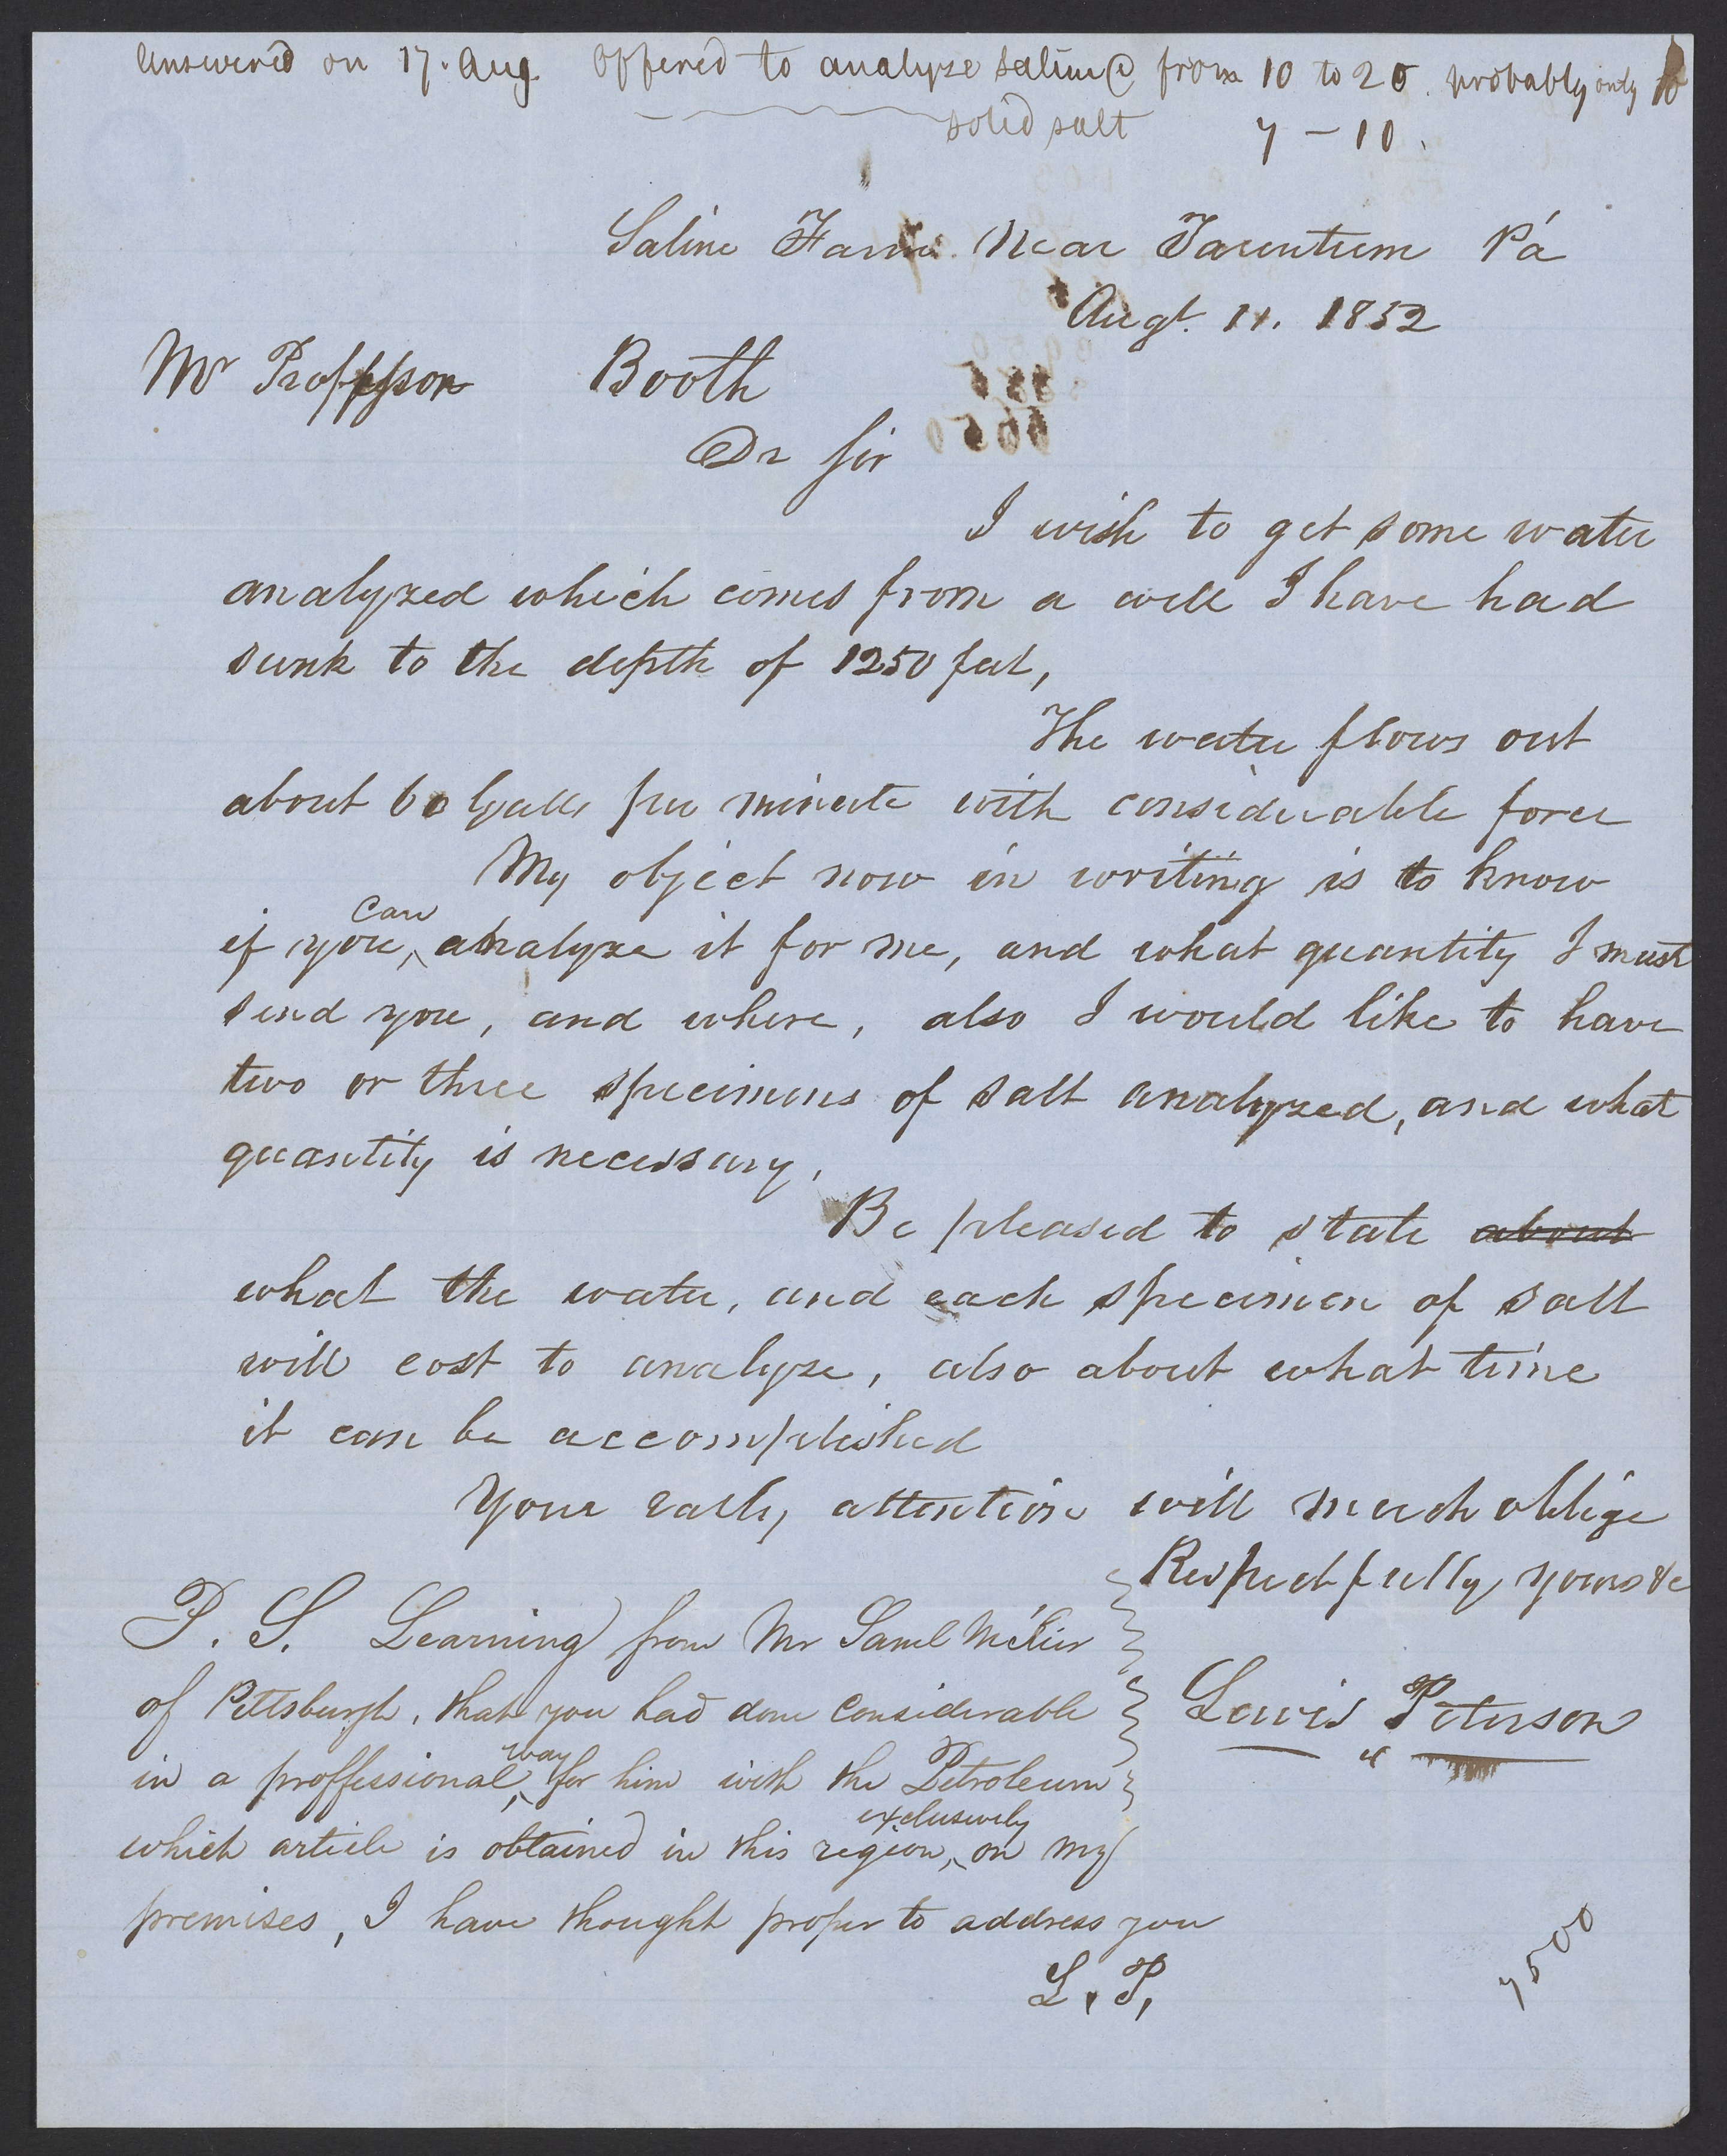 Answered on 17. Aug. Offered to analyze saline @ from 10 to 20. probably only 10
solid salt 7 – 10.
Saline Farm. Near Tarentum Pa
Augt. 11. 1852
Mr Proffessor Booth
Dr Sir
I wish to get some water
analyzed which comes from a well I have had
sunk to the depth of 1250 feet,
The water flows out
about 60 Galls per minute with considerable force
My object now in writing is to know
if you, can analyze it for me, and what quantity I must
send you, and where, also I would like to have
two or three specimens of salt analyzed, and what
quantity is necessary,
Be pleased to state about
what the water, and each specimen of salt
will cost to analyze, also about what time
it can be accomplished
Your early attention will much oblige
Respectfully yours &c
Lewis Peterson
P. S. Learning from Mr Saml McKier
of Pittsburgh, that you had done considerable
in a proffessional, way for him with the Petroleum
which article is obtained in this region, exclusively on my
premises, I have thought proper to address you
L. P.
7500